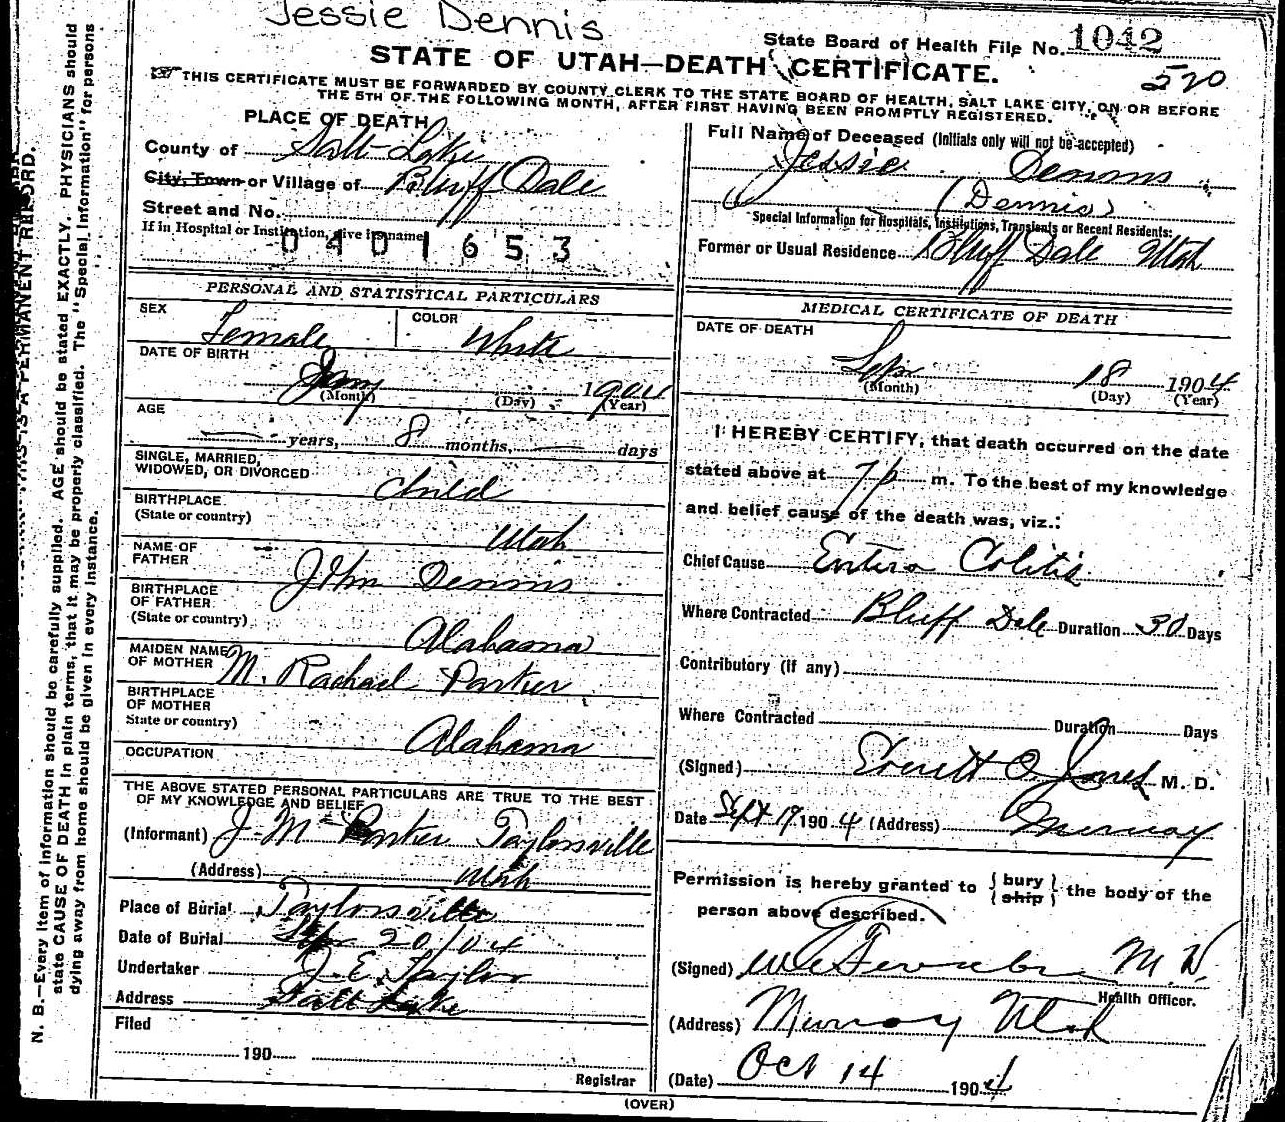 Jessie Dennis
State Board of Health File No. 1042
STATE OF UTAH—DEATH CERTIFICATE.
520
THIS CERTIFICATE MUST BE FORWARDED BY COUNTY CLERK TO THE STATE BOARD OF HEALTH, SALT LAKE CITY, ON OR BEFORE
THE 5TH OF THE FOLLOWING MONTH, AFTER FIRST HAVING BEEN PROMPTLY REGISTERED.
PLACE OF DEATH
County of Salt Lake
City, Town or Village of Bluff Dale
Street and No.
If in Hospital or Institution, give its name
0401653
PERSONAL AND STATISTICAL PARTICULARS
SEX Female
COLOR White
DATE OF BIRTH
Jany 1904
(Month) (Day) (Year)
AGE
years, 8 months, days
SINGLE, MARRIED,
WIDOWED, OR DIVORCED Child
BIRTHPLACE
(State or country) Utah
NAME OF
FATHER John Dennis
BIRTHPLACE
OF FATHER
(State or country) Alabama
MAIDEN NAME
OF MOTHER M. Rachael Parker
BIRTHPLACE
OF MOTHER
State or country) Alabama
OCCUPATION
THE ABOVE STATED PERSONAL PARTICULARS ARE TRUE TO THE BEST
OF MY KNOWLEDGE AND BELIEF
(Informant) J. M. Parker Taylorsville
(Address) Utah
Place of Burial Taylorsville
Date of Burial Sep 20/04
Undertaker J. E. Taylor
Address Salt Lake
Filed
190
Registrar
Full Name of Deceased (Initials only will not be accepted)
Jessie Dennis
(Dennis)
Special Information for Hospitals, Institutions, Transients or Recent Residents:
Former or Usual Residence Bluff Dale Utah
MEDICAL CERTIFICATE OF DEATH
DATE OF DEATH
Sep 18 1904
(Month) (Day) (Year)
I HEREBY CERTIFY, that death occurred on the date
stated above at 7 p m. To the best of my knowledge
and belief cause of the death was, viz.:
Chief Cause Entero Colitis
Where Contracted Bluff Dale Duration 30 Days
Contributory (if any)
Where Contracted Duration Days
(Signed) Everett O Jones M. D.
Date Sept 19 1904 (Address) Murray
Permission is hereby granted to {bury
ship} the body of the
person above described.
(Signed) M D
Health Officer.
(Address) Murray Utah
(Date) Oct 14 1904
(OVER)
N. B.—Every item of information should be carefully supplied. AGE should be stated EXACTLY. PHYSICIANS should
state CAUSE OF DEATH in plain terms, that it may be properly classified. The "Special Information" for persons
dying away from home should be given in every instance.
THIS IS A PERMANENT RECORD.